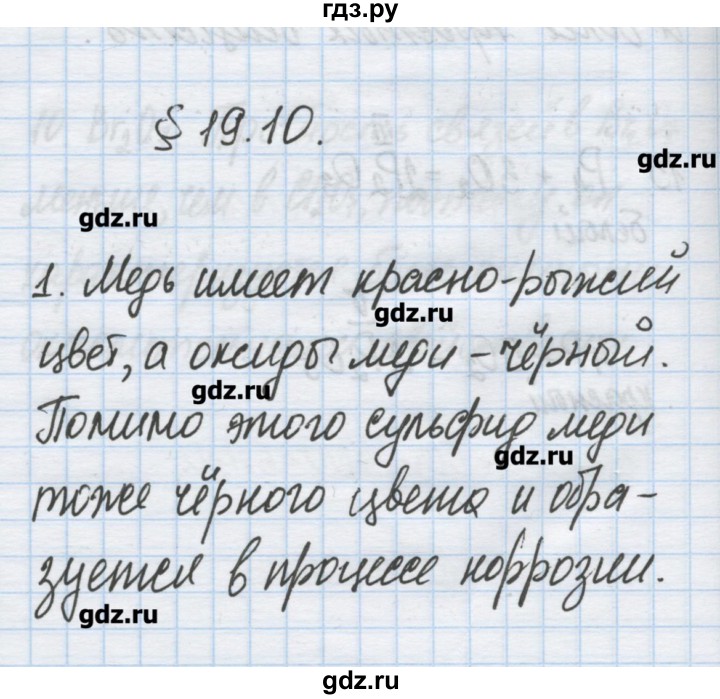 гдз.ру
§ 19.10.
gdz.ru
gdz.ru
1. Медь имеет красно-рыжий
gdz.ru
цвет, а оксиды меди - чёрный.
gdz.ru
Помимо этого сульфид меди
gdz.ru
тоже чёрного цвета и обра-
зуется в процессе коррозии.
gdz.ru
gdz.ru